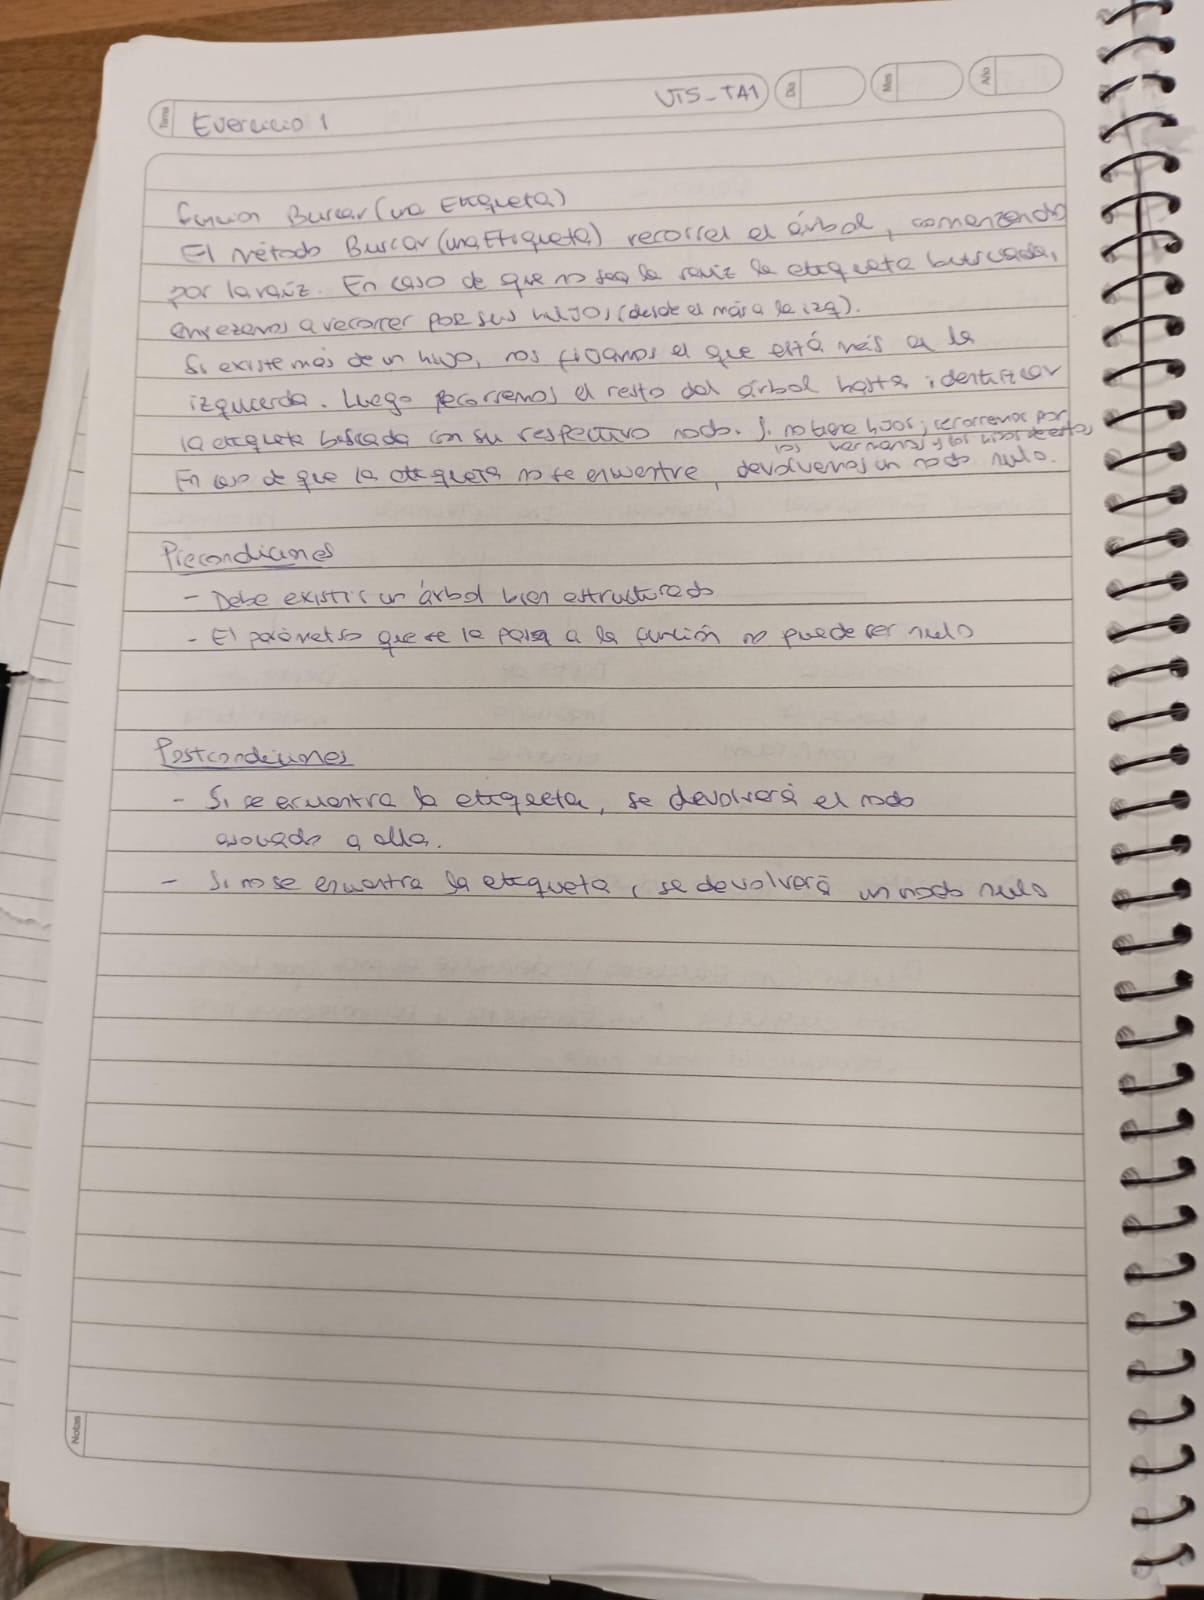 Tema Ejercicio 1 UT5_TA1 Día Mes Año
función Buscar(una Etiqueta)
El método Buscar(unaEtiqueta) recorrer el árbol, comenzando
por la raíz. En caso de que no sea la raíz la etiqueta buscada,
empezamos a recorrer por sus hijos (desde el más a la izq).
Si existe más de un hijo, nos fijamos el que está más a la
izquierda. Luego recorremos el resto del árbol hasta identificar
la etiqueta buscada con su respectivo nodo. Si no tiene hijos, recorremos por
los hermanos y los hijos de estos,
En caso de que la etiqueta no se encuentre, devolvemos un nodo nulo.
Precondiciones
- Debe existir un árbol bien estructurado
- El parámetro que se le pasa a la función no puede ser nulo
Postcondiciones
- Si se encuentra la etiqueta, se devolverá el nodo
asociado a ella.
- Si no se encuentra la etiqueta, se devolverá un nodo nulo
Notas